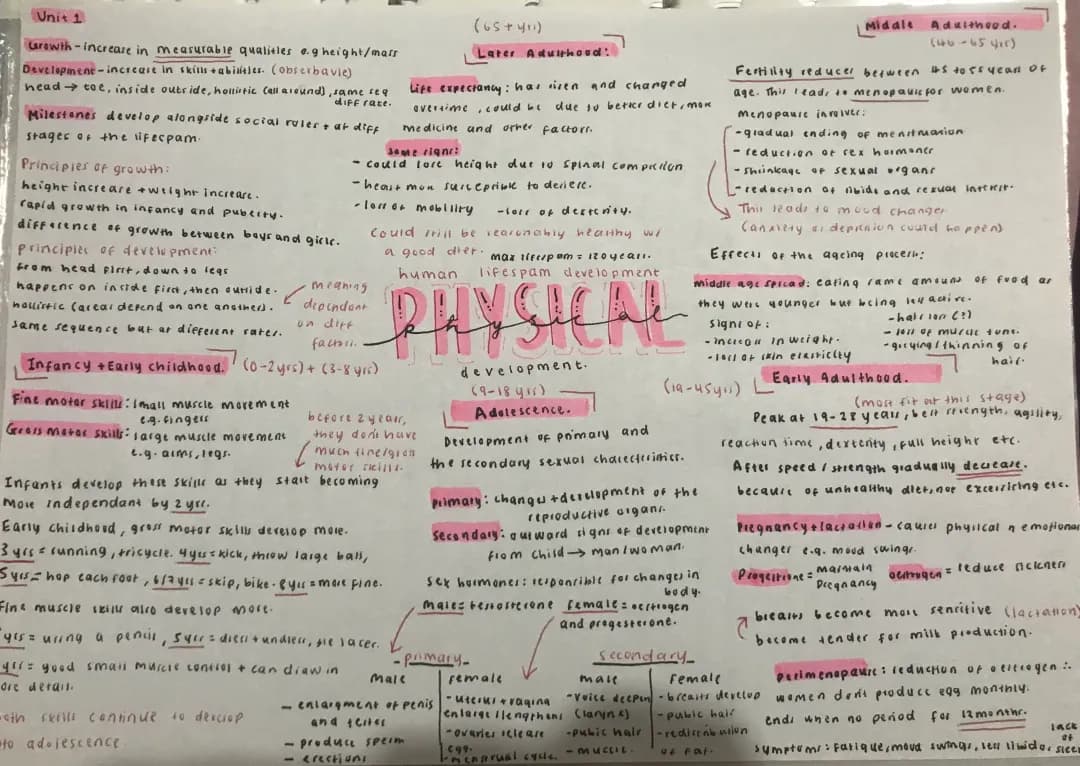 Unit 1
Growth - increase in measurable qualities e.g height/mass
Development - increase in skills + abilities. (observable)
head → toe, inside outside, hollistic (all around), same seq
diff rate.
Milestones develop alongside social rules + at diff
stages of the lifespam.
Principles of growth:
height increase + weight increase.
rapid growth in infancy and puberty.
difference of growth between boys and girls.
principles of development:
From head first, down to legs
happens on inside first, then outside.
hollistic (areas depend on one another).
same sequence but at different rates.
meaning
dependant
on diff
factors.
Infancy + Early childhood. (0-2yrs) + (3-8 yrs)
Fine motor skills: small muscle movement
e.g. fingers
Gross Motor skills: large muscle movement
e.g. arms, legs.
before 2 years,
they don't have
much fine/gross
motor skills.
Infants develop these skills as they start becoming
more independant by 2 yrs.
Early childhood, gross motor skills develop more.
3 yrs = running, tricycle. 4yrs = kick, throw large ball,
5yrs = hop each foot, 6/7 yrs = skip, bike. 8yrs = more fine.
Fine muscle skills also develop more.
yrs = using a pencil, 5yrs = dress + undress, tie laces.
yrs = good small muscle control + can draw in
ore detail.
oth skills continue to develop
to adolescence.
(65 + yrs)
Later Adulthood:
Life expectancy: has risen and changed
overtime, could be due to better diet, more
medicine and other factors.
Some signs:
- could lose height due to spinal compression
- heart more susceptible to disease.
- loss of mobility - loss of dexterity.
Could still be reasonably healthy w/
a good diet. max lifespam = 120 years.
human lifespam development
PHYSICAL
physical
development.
(9-18 yrs)
Adolescence.
Development of primary and
the secondary sexual characteristics.
Primary: changes + development of the
reproductive organs.
Secondary: outward signs of development
from child → man/woman.
Sex hormones: responsible for changes in
body.
male = testosterone female = oestrogen
and progesterone.
- primary -
male
- enlargment of penis
and testes
- produce sperm
- erections
female
- uterus + vagina
enlarge/lengthens
- ovaries release
egg.
- menstrual cycle.
secondary
male
- voice deepen
(larynx)
- pubic hair
- muscle.
female
- breasts develop
- pubic hair
- redistribution
of fat.
Middle Adulthood.
(46 - 65 yrs)
Fertility reduces between 45 to 55 years of
age. This leads to menopause for women.
Menopause involves:
- gradual ending of menstruation
- reduction of sex hormones
- shrinkage of sexual organs
- reduction of libido and sexual interest.
This leads to mood changes
(anxiety or depression could happen)
Effects of the ageing process:
middle age spread: eating same amount of food as
they were younger but being less active.
signs of:
- increase in weight.
- loss of skin elasticity
- hair loss (?)
- loss of muscle tone.
- greying/thinning of
hair.
(19-45yrs) Early Adulthood.
(most fit at this stage)
Peak at 19-28 years, best strength, agility,
reaction time, dexterity, full height etc.
After speed/strength gradually decrease.
because of unhealthy diet, not excersising etc.
Pregnancy + lactation - causes physical n emotional
changes e.g. mood swings.
Progestrone = maintain
Pregnancy
oestrogen = reduce sickness
breasts become more sensitive (lactation)
become tender for milk production.
Perimenopause: reduction of oestrogen ∴
women don't produce egg monthly.
ends when no period for 12 months.
symptoms: fatigue, mood swings, less libido,
lack
of sleep